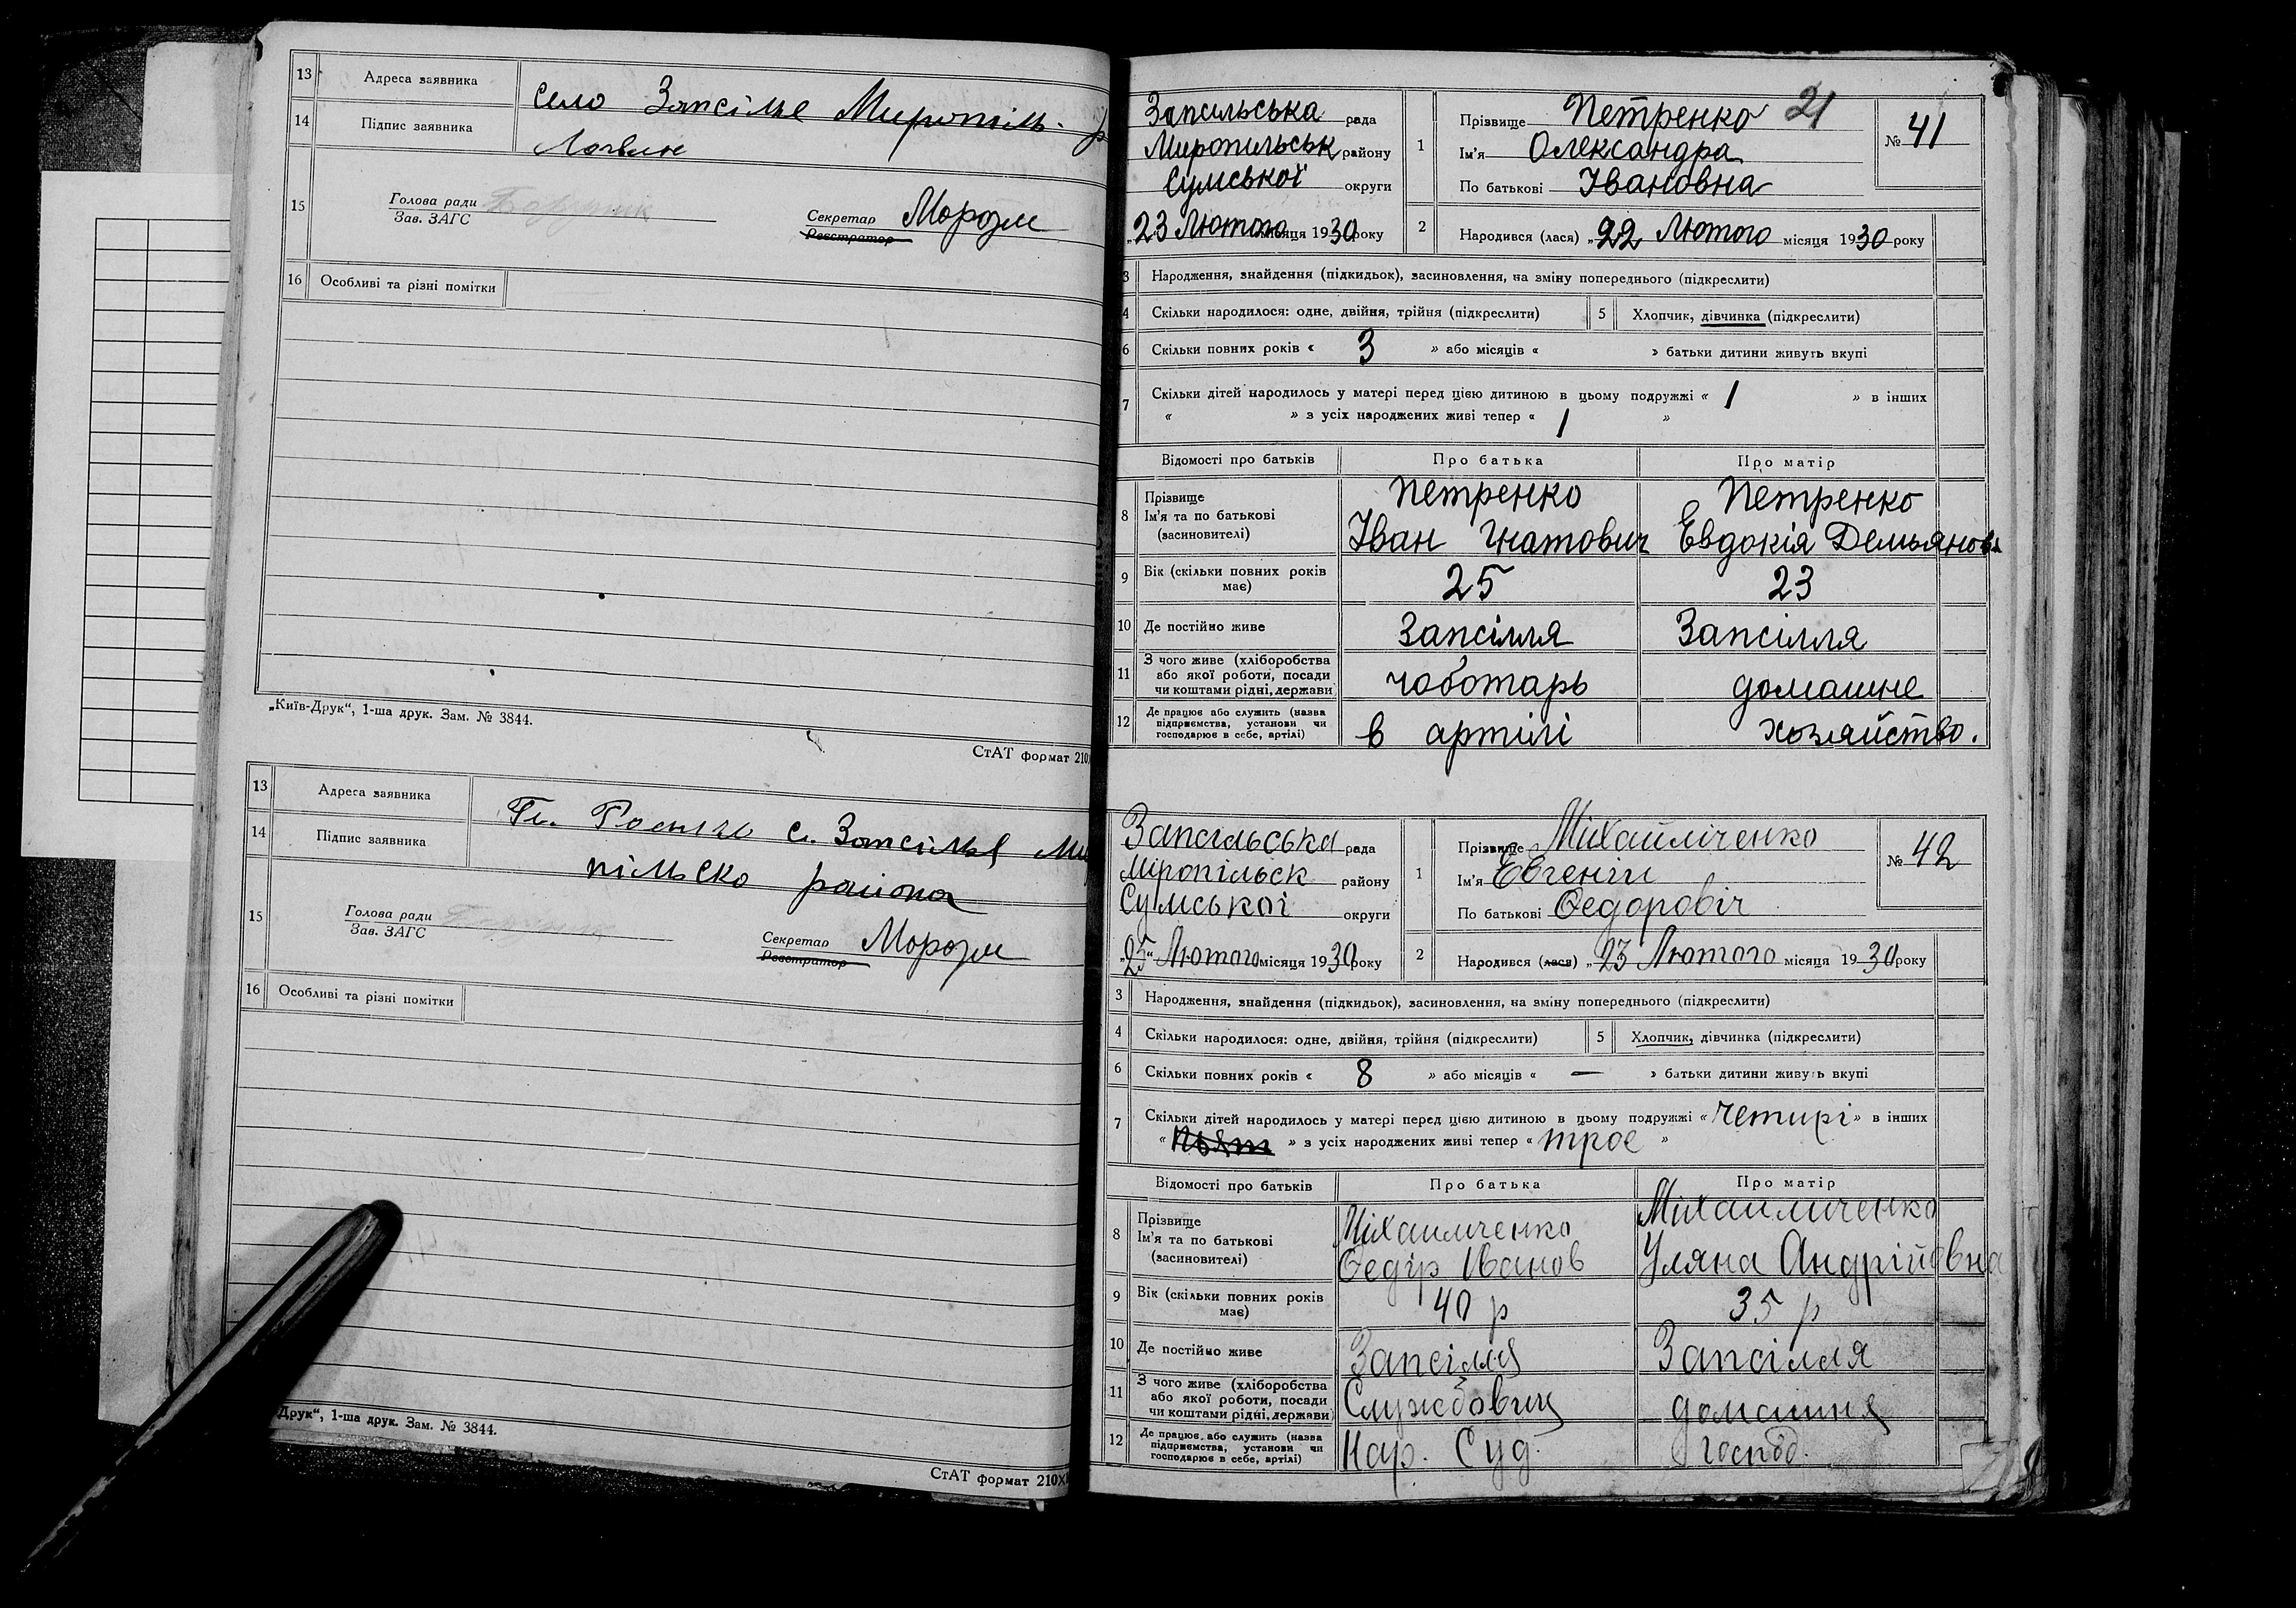 13 Адреса заявника село Запсілье Миропіль. р
14 Підпис заявника Логвин
15 Голова ради
Зав. ЗАГС
Секретар Морозм
Реєстратор
16 Особливі та різні помітки
„Київ-Друк“, 1-ша друк. Зам. № 3844.
СтАТ формат 210
13 Адреса заявника с. Запсілья Ми
14 Підпис заявника пільско района
15 Голова ради
Зав. ЗАГС
Секретар Морозм
Реєстратор
16 Особливі та різні помітки
Друк“, 1-ша друк. Зам. № 3844.
СтАТ формат 210Х
21
Запсильська рада
Миропильськ району
Сумської округи
„23 Лютого місяця 1930 року
1 Прізвище Петренко
Ім'я Олександра
По батькові Івановна
№ 41
2 Народився (лася) „22 Лютого місяця 1930 року
3 Народження, знайдення (підкидьок), засиновлення, на зміну попереднього (підкреслити)
4 Скільки народилося: одне, двійня, трійня (підкреслити) 5 Хлопчик, дівчинка (підкреслити)
6 Скільки повних років « 3 » або місяців « » батьки дитини живуть вкупі
7 Скільки дітей народилось у матері перед цією дитиною в цьому подружжі « 1 » в інших
« » з усіх народжених живі тепер « 1 »
Відомості про батьків Про батька Про матір
8 Прізвище Петренко Петренко
Ім'я та по батькові Іван Гнатович Евдокія Демьянова
(засиновителі)
9 Вік (скільки повних років має) 25 23
10 Де постійно живе Запсілля Запсілля
11 З чого живе (хліборобства
або якої роботи, посади
чи коштами рідні, держави) чоботарь домашне
12 Де працює або служить (назва
підприємства, установи чи
господарює в себе, артілі) в артілі хозяйство.
Запсільська рада
Міропільск району
Сумської округи
„25“ Лютого місяця 1930 року
1 Прізвище Міхайліченко
Ім'я Евгеній
По батькові Федоровіч
№ 42
2 Народився (лася) „23 Лютого місяця 1930 року
3 Народження, знайдення (підкидьок), засиновлення, на зміну попереднього (підкреслити)
4 Скільки народилося: одне, двійня, трійня (підкреслити) 5 Хлопчик, дівчинка (підкреслити)
6 Скільки повних років « 8 » або місяців « — » батьки дитини живуть вкупі
7 Скільки дітей народилось у матері перед цією дитиною в цьому подружжі « четирі » в інших
« пьят » з усіх народжених живі тепер « трое »
Відомості про батьків Про батька Про матір
8 Прізвище Міхаиличенко Міхаиличенко
Ім'я та по батькові Федір Іванов Уляна Андрійовна
(засиновителі)
9 Вік (скільки повних років має) 40 р 35 р
10 Де постійно живе Запсілля Запсілля
11 З чого живе (хліборобства
або якої роботи, посади
чи коштами рідні, держави) Службовиц домашня
12 Де працює або служить (назва
підприємства, установи чи
господарює в себе, артілі) Нар. Суд. господ.